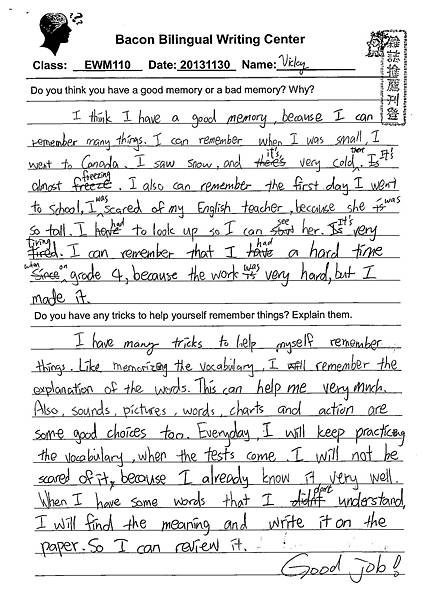 Bacon Bilingual Writing Center
Class: EWM110 Date: 20131130 Name: Vicky
雜誌推薦刊登
Do you think you have a good memory or a bad memory? Why?
I think I have a good memory, because I can
remember many things. I can remember when I was small, I
went to Canada. I saw snow, and there's it's very cold there. Is It's
almost freeze freezing. I also can remember the first day I went
to school, I was scared of my English teacher, because she is was
so tall. I have had to look up so I can see her. It's very
tired tiring. I can remember that I have had a hard time
Since when on grade 4, because the work is was very hard, but I
made it.
Do you have any tricks to help yourself remember things? Explain them.
I have many tricks to help myself remember
things. Like memorizing the vocabulary, I will remember the
explanation of the words. This can help me very much.
Also, sounds, pictures, words, charts and action are
some good choices too. Everyday, I will keep practicing
the vocabulary, when the tests come. I will not be
scared of it, because I already know it very well.
When I have some words that I didn't don't understand,
I will find the meaning and write it on the
paper. So I can review it.
Good job!